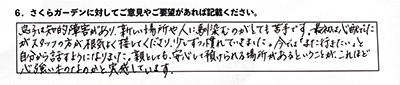 6．さくらガーデンに対してご意見やご要望があれば記載ください。
息子は知的障害があり、新しい場所や人に馴染むのがとても苦手です。最初は心配でした
がスタッフの方が根気よく接してくださり、少しずつ慣れていきました。今では「また行きたい」と
自分から話すようになりました。親としても、安心して預けられる場所があるということが、これほど
心強いものなのかと実感しています。